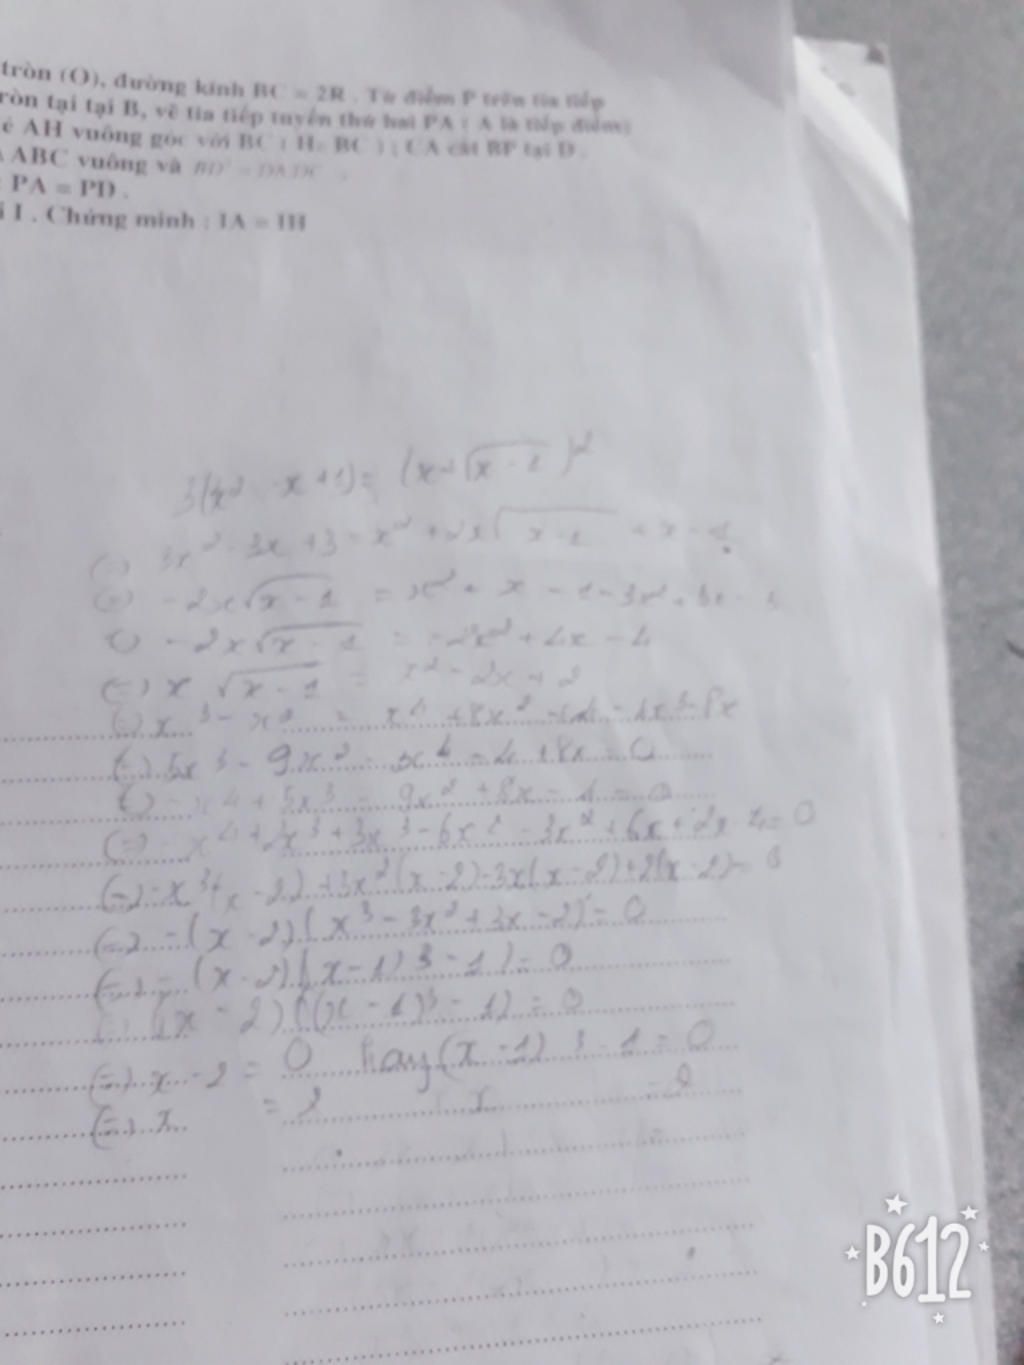 tròn (O), đường kính BC = 2R . Từ điểm P trên tia tiếp
ròn tại tại B, vẽ tia tiếp tuyến thứ hai PA ( A là tiếp điểm)
ẻ AH vuông góc với BC ( H BC ) ; CA cắt BP tại D .
ABC vuông và BD² = DA.DC .
: PA = PD .
i I . Chứng minh : IA = IH
3(x² - x + 1) = (x + √x - 1)²
(=) 3x² - 3x + 3 = x² + 2x√x - 1 + x - 1
(=) - 2x√x - 1 = x² + x - 1 - 3x² + 3x - 3
(=) - 2x√x - 1 = - 2x² + 4x - 4
(=) x √x - 1 = x² - 2x + 2
(=) x³ - x² = x⁴ + 8x² + 4 - 4x³ - 8x
(=) 5x³ - 9x² - x⁴ - 4 + 8x = 0
(=) - x⁴ + 5x³ - 9x² + 8x - 4 = 0
(=) - x⁴ + 2x³ + 3x³ - 6x² - 3x² + 6x + 2x - 4 = 0
(=) - x³(x - 2) + 3x²(x - 2) - 3x(x - 2) + 2(x - 2) = 0
(=) - (x - 2)(x³ - 3x² + 3x - 2) = 0
(=) - (x - 2)(x - 1)3 - 1) = 0
(=) (x - 2)((x - 1)³ - 1) = 0
(=) x - 2 = 0 hay (x - 1)3 - 1 = 0
(=) x = 2 x = 2
B612